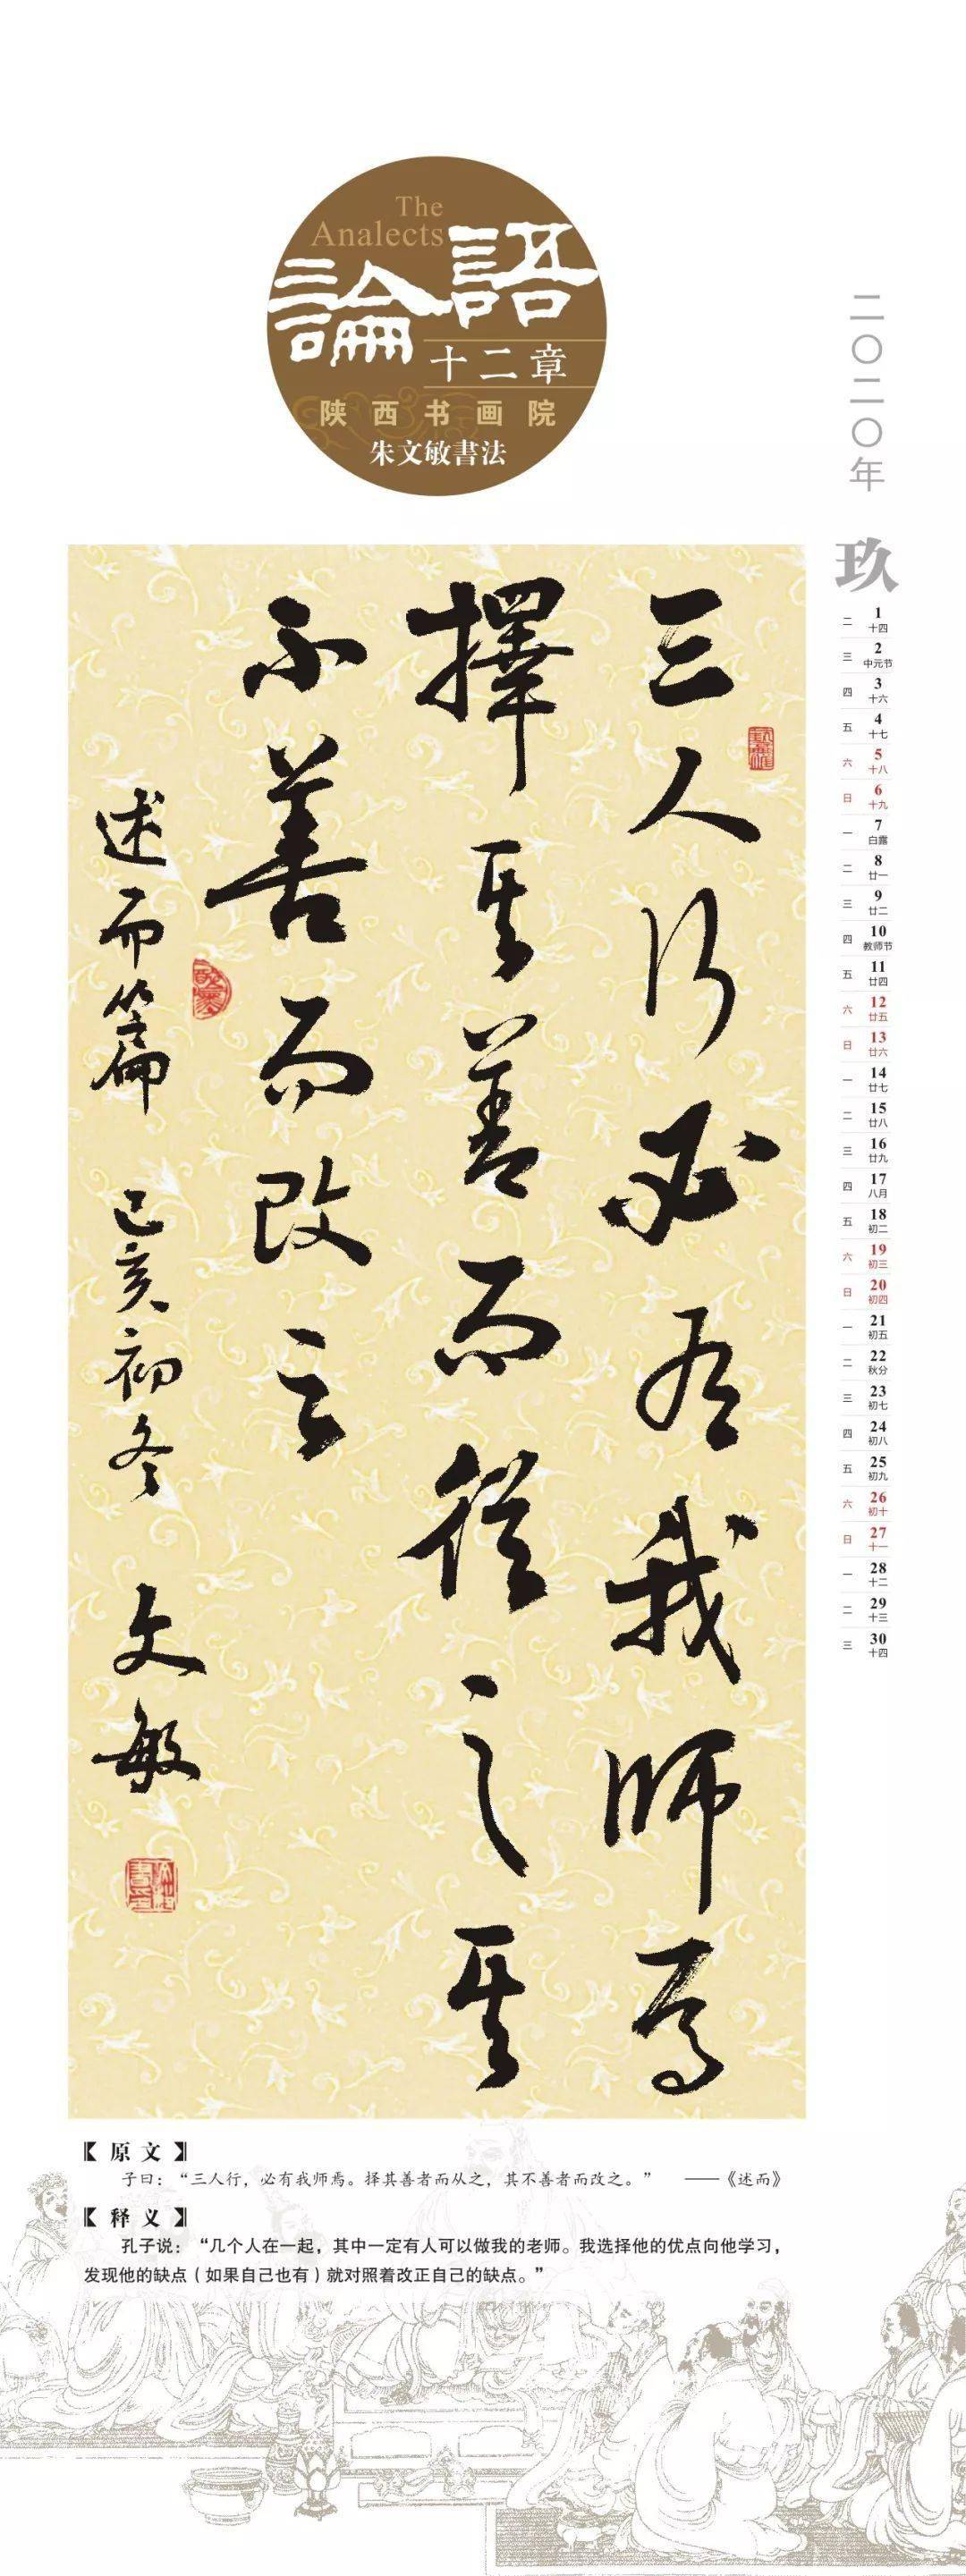 The
Analects
論語
十二章
陕西书画院
朱文敏書法
二〇二〇年
玖
二 1 十四
三 2 中元节
四 3 十六
五 4 十七
六 5 十八
日 6 十九
一 7 白露
二 8 廿一
三 9 廿二
四 10 教师节
五 11 廿四
六 12 廿五
日 13 廿六
一 14 廿七
二 15 廿八
三 16 廿九
四 17 八月
五 18 初二
六 19 初三
日 20 初四
一 21 初五
二 22 秋分
三 23 初七
四 24 初八
五 25 初九
六 26 初十
日 27 十一
一 28 十二
二 29 十三
三 30 十四
三人行必有我師焉
擇其善而從之其
不善而改之
述而篇 己亥初冬 文敏
【原文】
子曰：“三人行，必有我师焉。择其善者而从之，其不善者而改之。” ——《述而》
【释义】
孔子说：“几个人在一起，其中一定有人可以做我的老师。我选择他的优点向他学习，
发现他的缺点（如果自己也有）就对照着改正自己的缺点。”